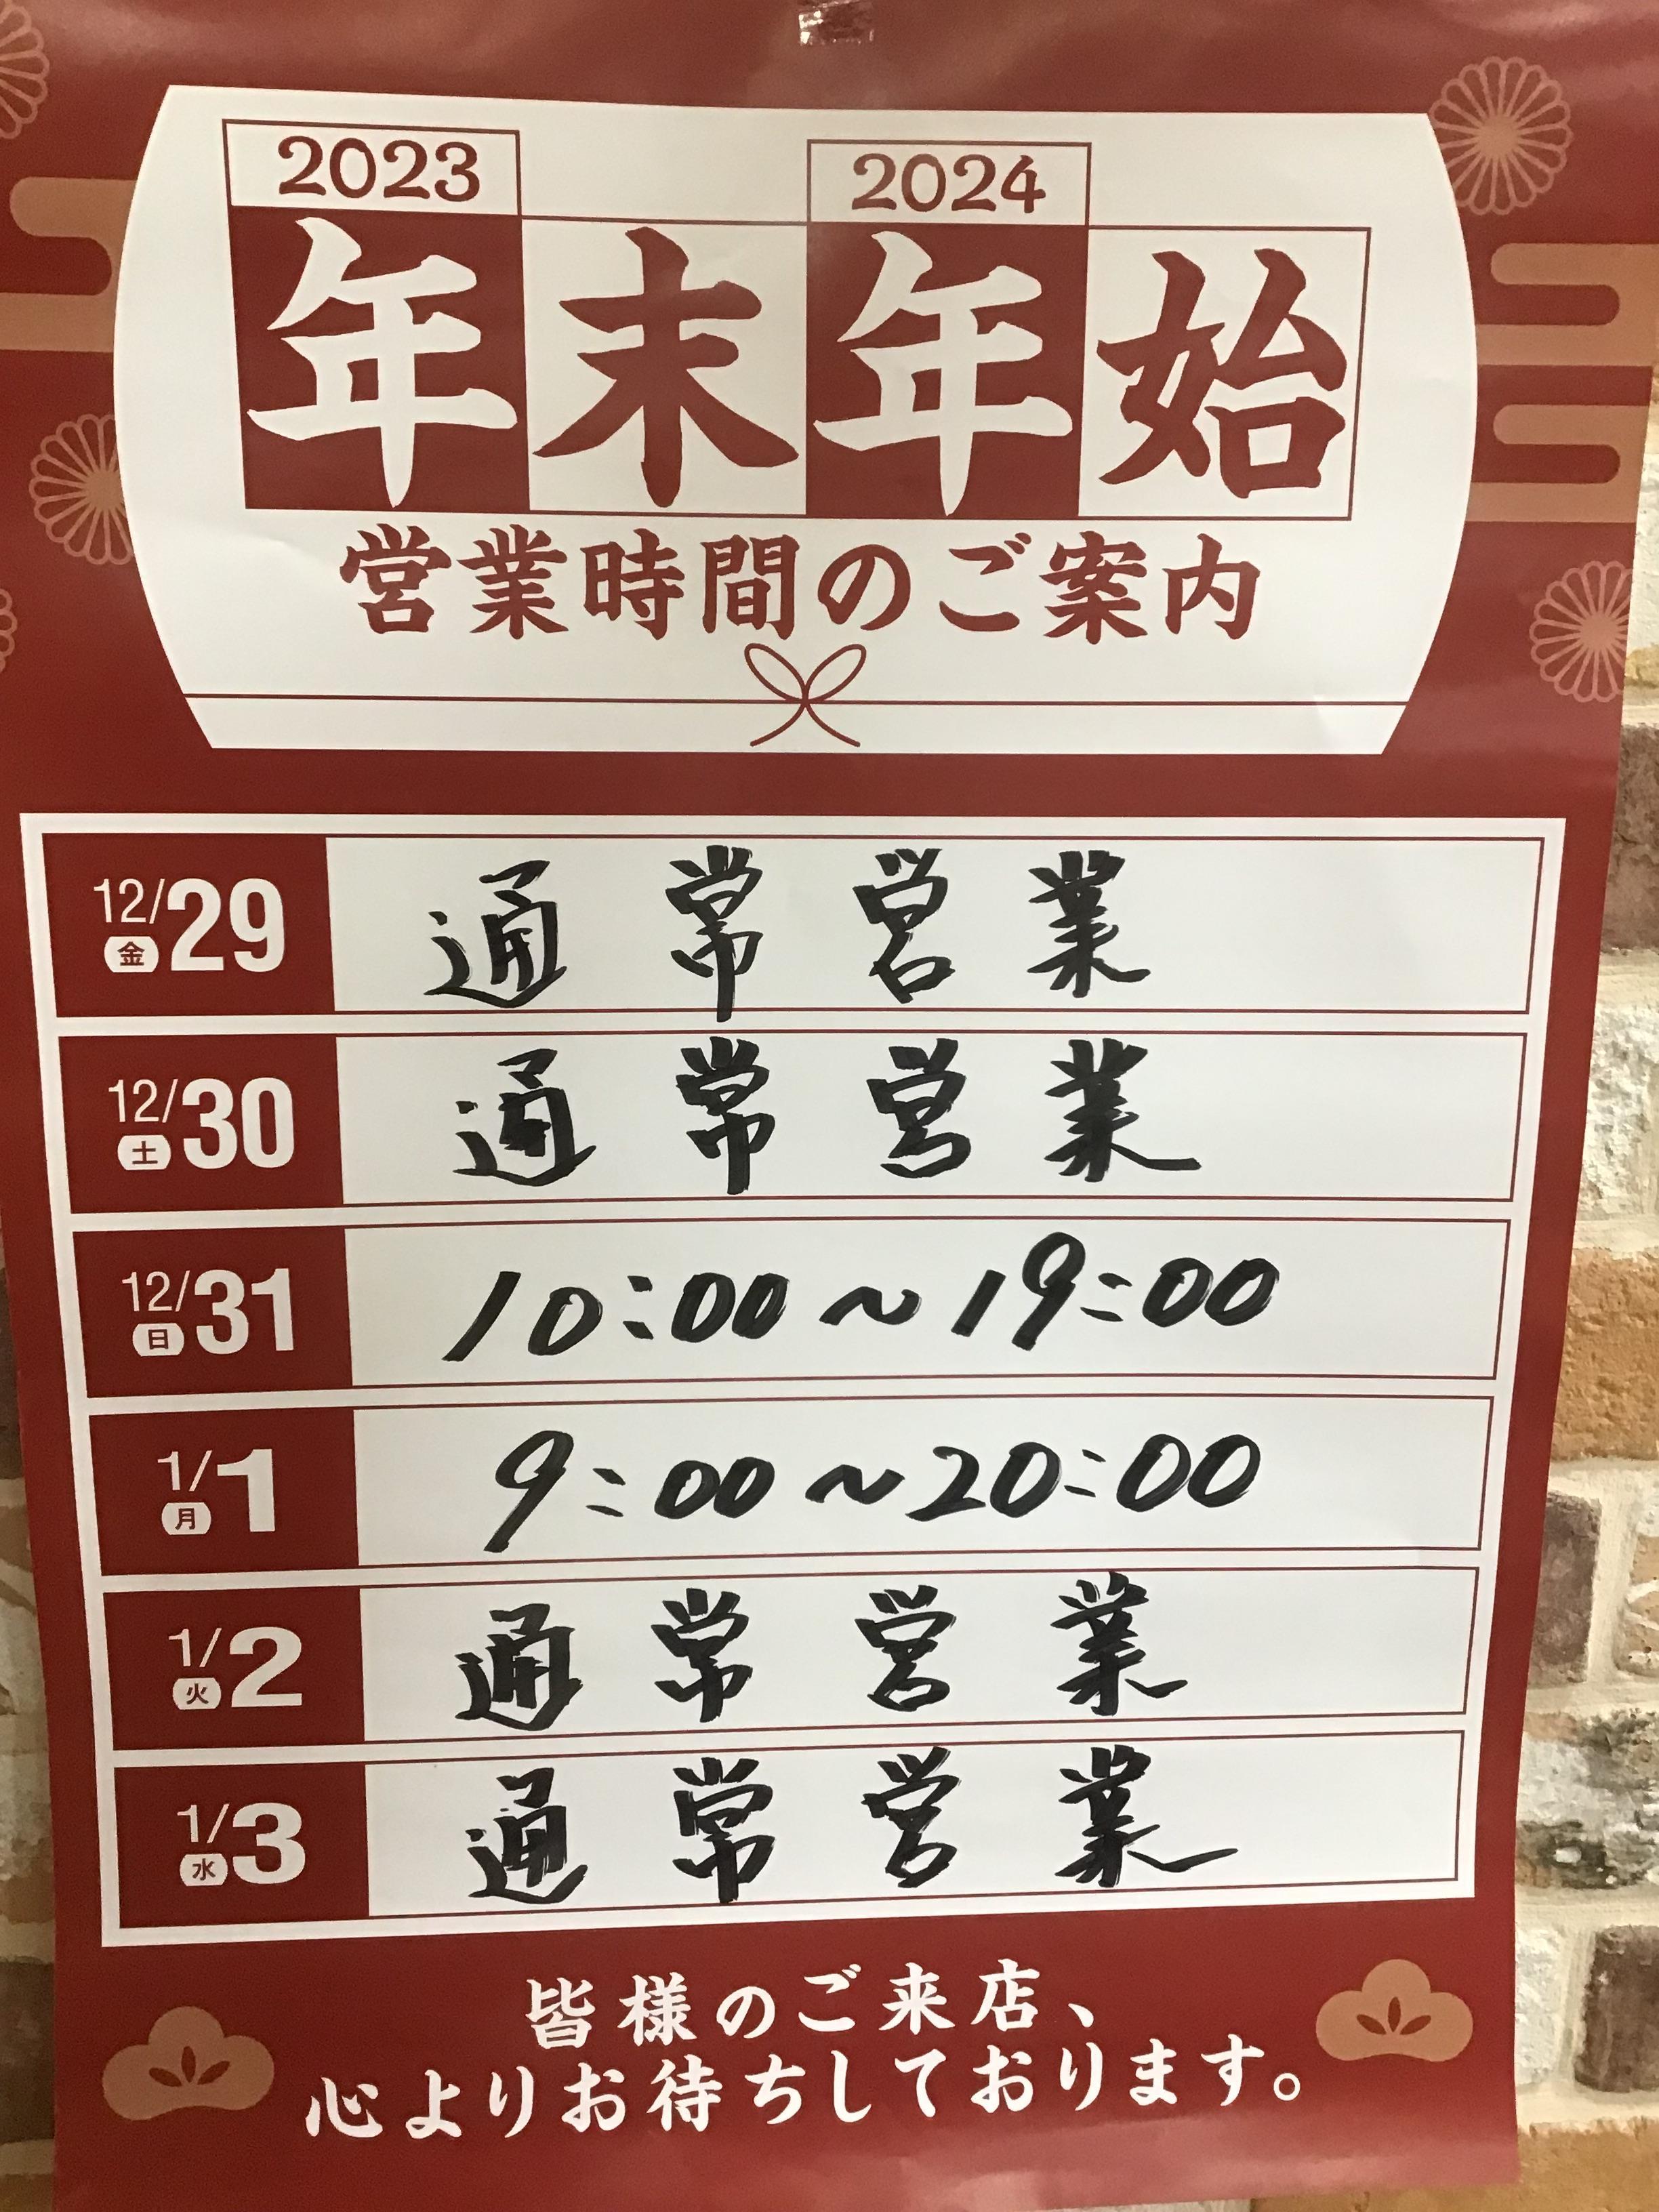 2023 2024
年末年始
営業時間のご案内
12/29 金 通常営業
12/30 土 通常営業
12/31 日 10:00～19:00
1/1 月 9:00～20:00
1/2 火 通常営業
1/3 水 通常営業
皆様のご来店、
心よりお待ちしております。